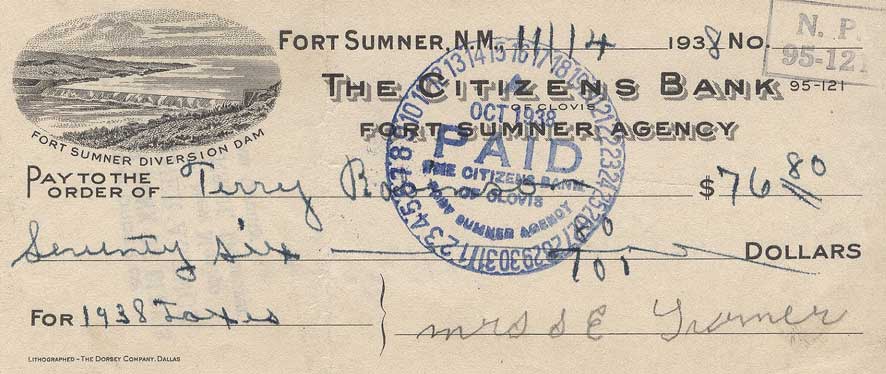 FORT SUMNER, N.M., 11/14 1938 NO.
N. P.
95-121
THE CITIZENS BANK 95-121
OF CLOVIS
FORT SUMNER AGENCY
FORT SUMNER DIVERSION DAM
PAY TO THE ORDER OF Terry $76 80
Seventy six DOLLARS
FOR 1938 Taxes
Mrs S E
LITHOGRAPHED - THE DORSEY COMPANY, DALLAS
1 2 3 4 5 6 7 8 9 10 11 12 13 14 15 16 17 18 19 20 21 22 23 24 25 26 27 28 29 30 31
OCT 1938
PAID
THE CITIZENS BANK
OF CLOVIS
FORT SUMNER AGENCY